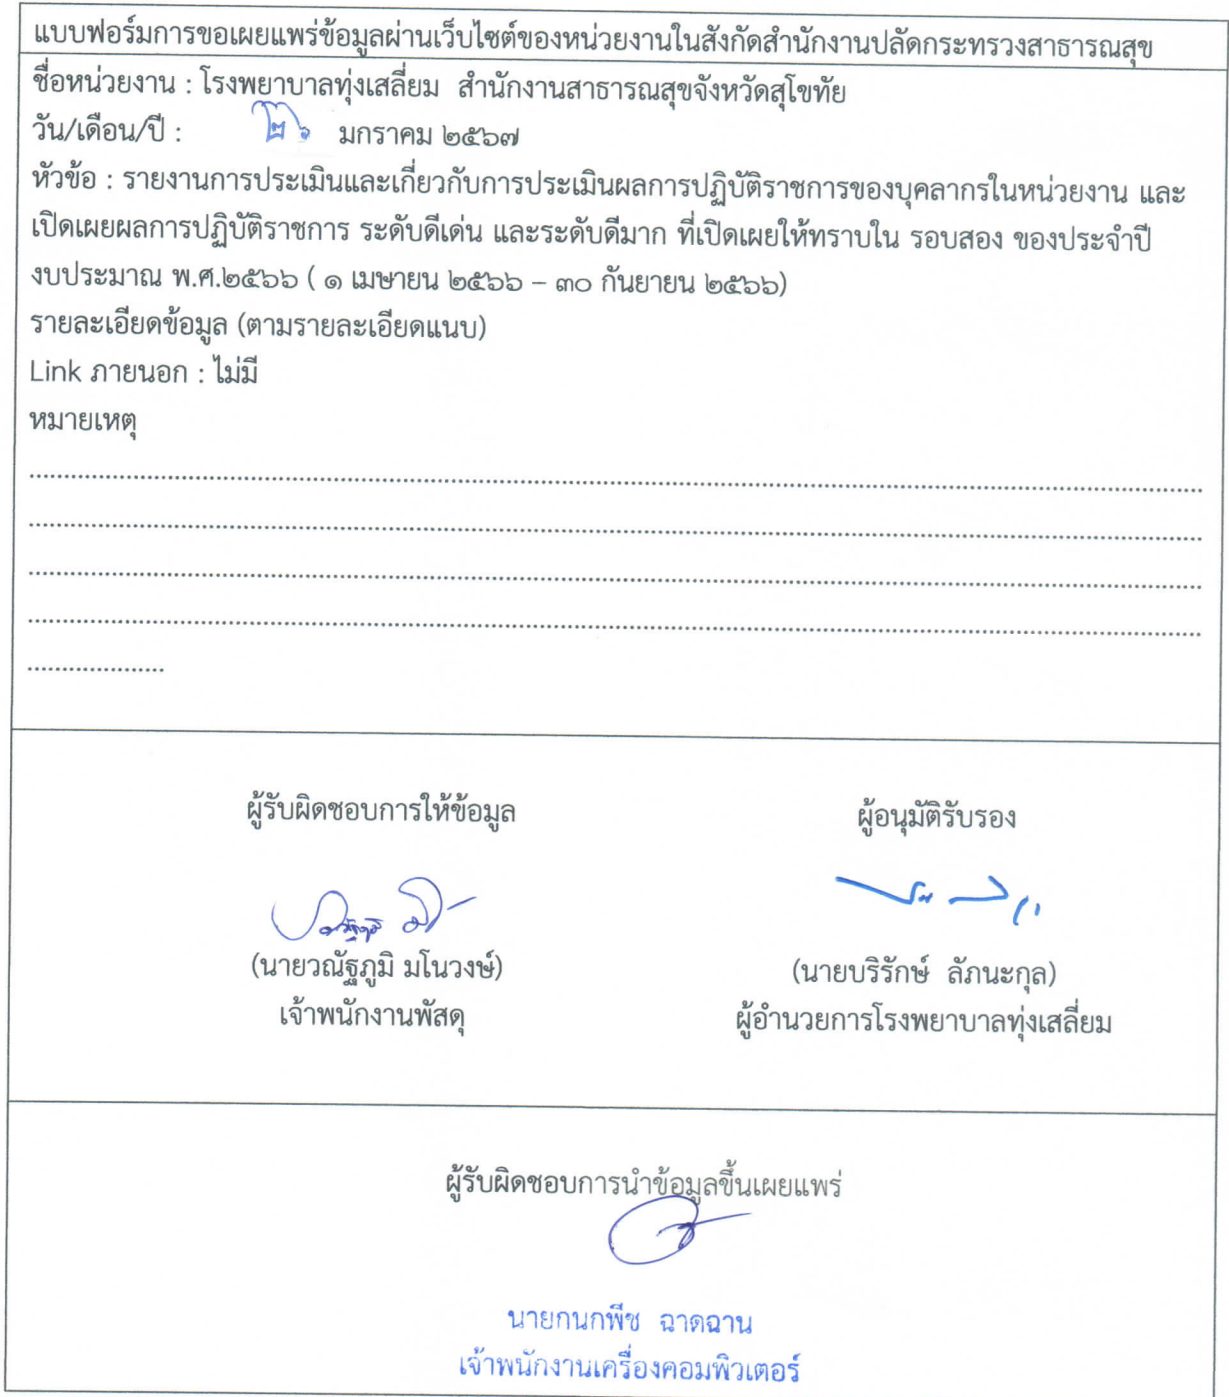 แบบฟอร์มการขอเผยแพร่ข้อมูลผ่านเว็บไซต์ของหน่วยงานในสังกัดสำนักงานปลัดกระทรวงสาธารณสุข
ชื่อหน่วยงาน : โรงพยาบาลทุ่งเสลี่ยม สำนักงานสาธารณสุขจังหวัดสุโขทัย
วัน/เดือน/ปี : ๒๖ มกราคม ๒๕๖๗
หัวข้อ : รายงานการประเมินและเกี่ยวกับการประเมินผลการปฏิบัติราชการของบุคลากรในหน่วยงาน และ
เปิดเผยผลการปฏิบัติราชการ ระดับดีเด่น และระดับดีมาก ที่เปิดเผยให้ทราบใน รอบสอง ของประจำปี
งบประมาณ พ.ศ.๒๕๖๖ ( ๑ เมษายน ๒๕๖๖ – ๓๐ กันยายน ๒๕๖๖)
รายละเอียดข้อมูล (ตามรายละเอียดแนบ)
Link ภายนอก : ไม่มี
หมายเหตุ
ผู้รับผิดชอบการให้ข้อมูล
(นายวณัฐภูมิ มโนวงษ์)
เจ้าพนักงานพัสดุ
ผู้อนุมัติรับรอง
(นายบริรักษ์ ลัภนะกุล)
ผู้อำนวยการโรงพยาบาลทุ่งเสลี่ยม
ผู้รับผิดชอบการนำข้อมูลขึ้นเผยแพร่
นายกนกพีช ฉาดฉาน
เจ้าพนักงานเครื่องคอมพิวเตอร์